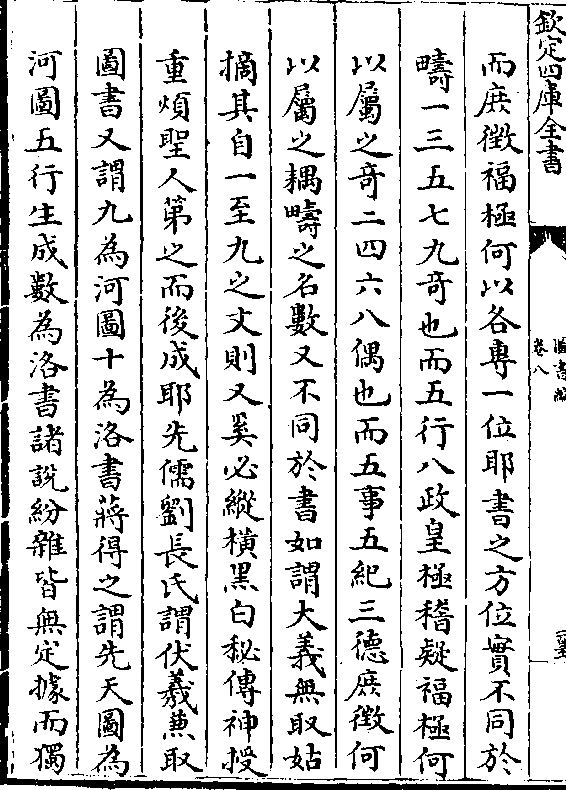 欽定四庫全書
卷八
而庶徵福極何以各專一位耶書之方位實不同於
疇一三五七九奇也而五行八政皇極稽疑福極何
以屬之奇二四六八偶也而五事五紀三德庶徵何
以屬之耦疇之名數又不同於書如謂大義無取姑
摘其自一至九之文則又奚必縱橫黑白秘傳神授
重煩聖人第之而後成耶先儒劉長氏謂伏羲兼取
圖書又謂九為河圖十為洛書蔣得之謂先天圖為
河圖五行生成數為洛書諸說紛雜皆無定據而獨